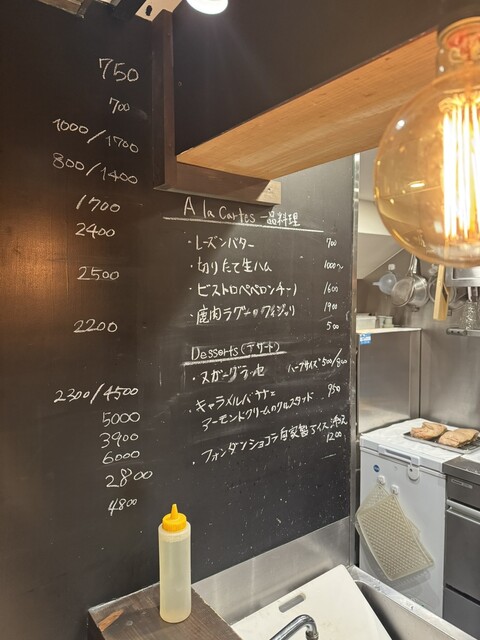 750
700
1000/1700
800/1400
1700
2400
2500
2200
2300/4500
5000
3900
6000
2800
4800
A la Cartes 一品料理
・レーズンバター 700
・切りたて生ハム 1000〜
・ビストロペペロンチーノ 1600
・鹿肉ラグーの 1900
500
Desserts(デザート)
・ヌガーグラッセ ハーフサイズ500/800
・キャラメルバナナと
アーモンドクリームの 950
・フォンダンショコラ 自家製アイス添え
1200